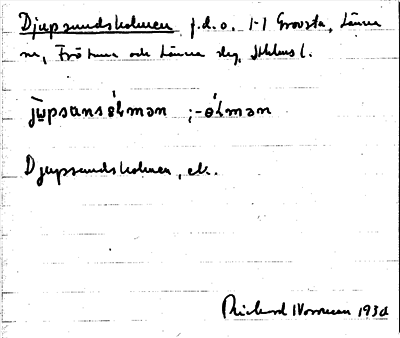 Djupsundsholmen f.d.o. 1-1 Grovsta, Länna
m, Frötuna och Länna slg, Sthlms l.
jùpsunsɵ́lmən ; -ɵ́lmən
Djupsundsholmen, ek.
Richard Norrman 1930